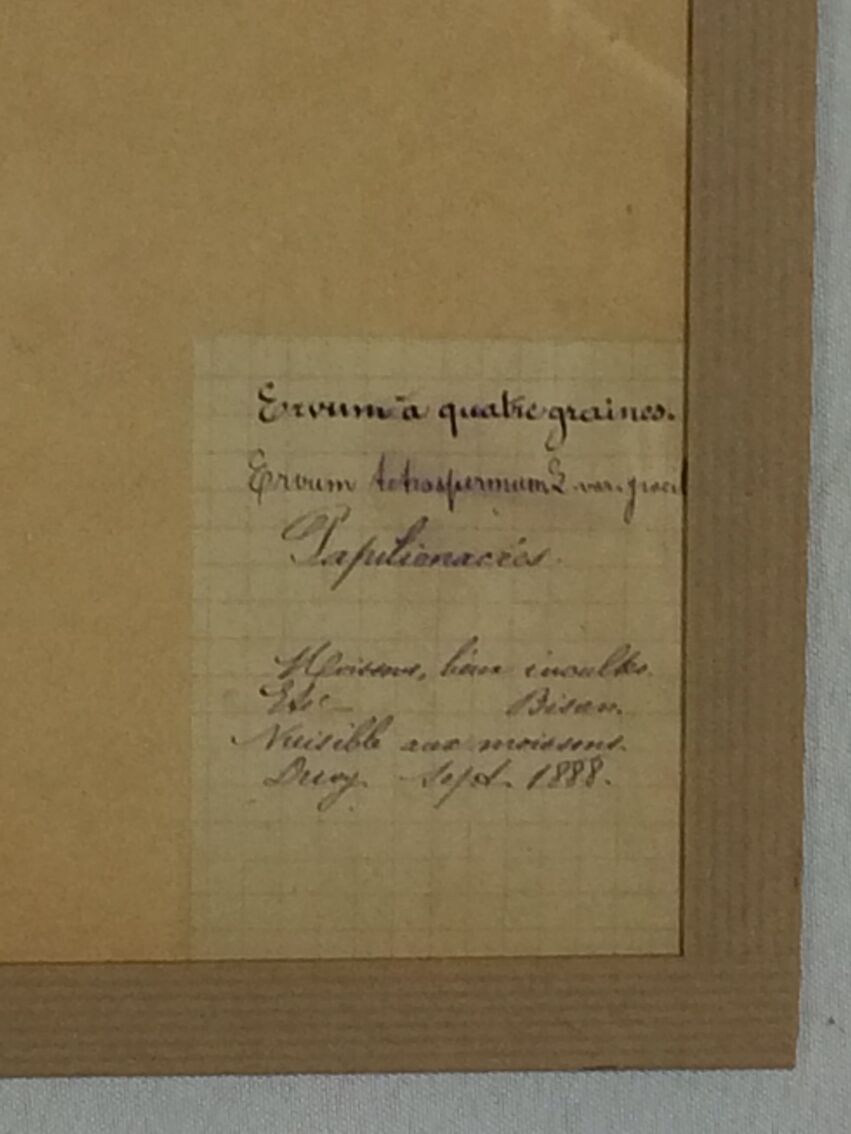 Ervum à quatre graines.
Ervum tetraspermum L. var. gracil
Papilionacées.
Moissons, lieux incultes.
Eté Bisan.
Nuisible aux moissons.
Sept. 1888.